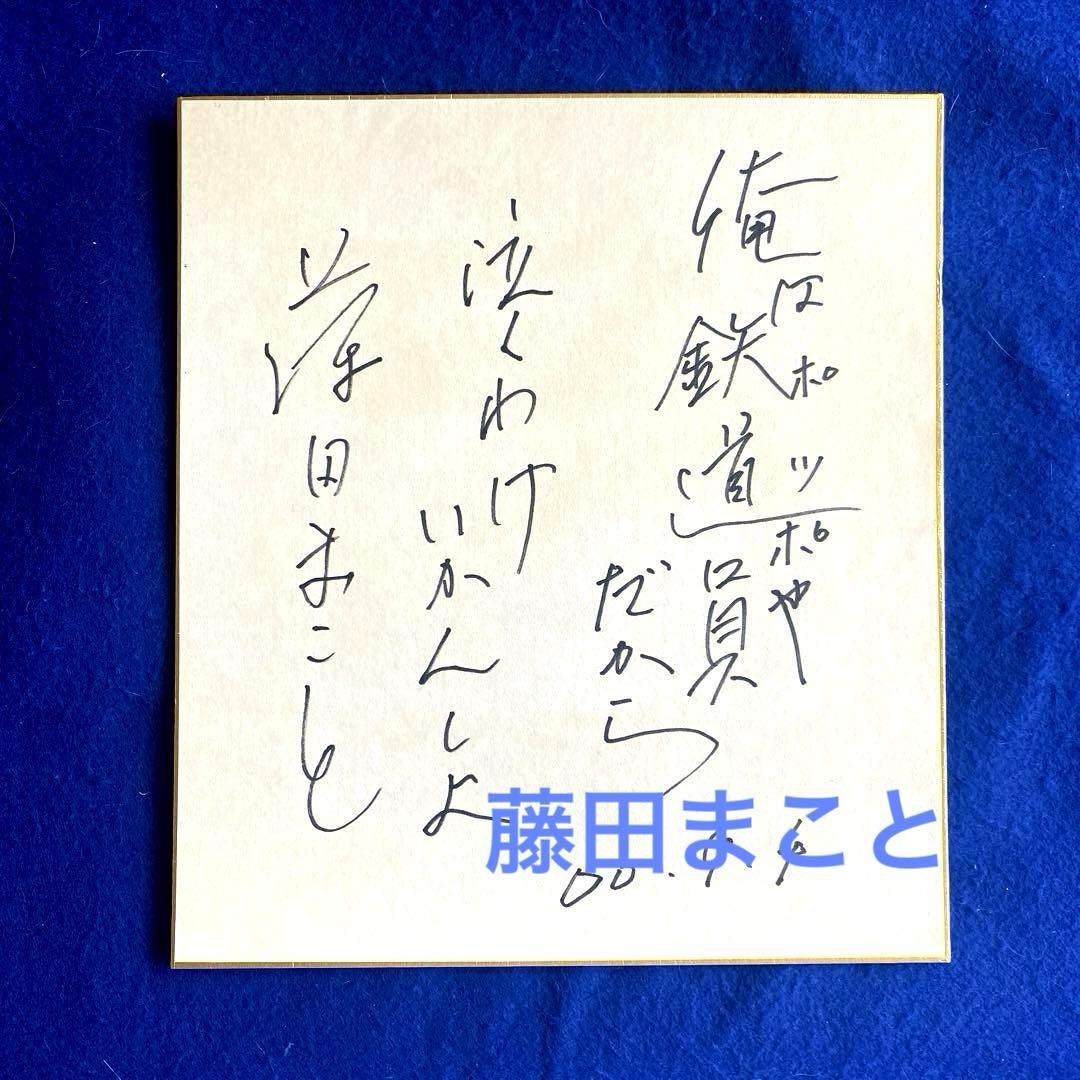 俺は
鉄道員
ポッポや
だから
泣くわけ
いかんしよ
藤田まこと
藤田まこと